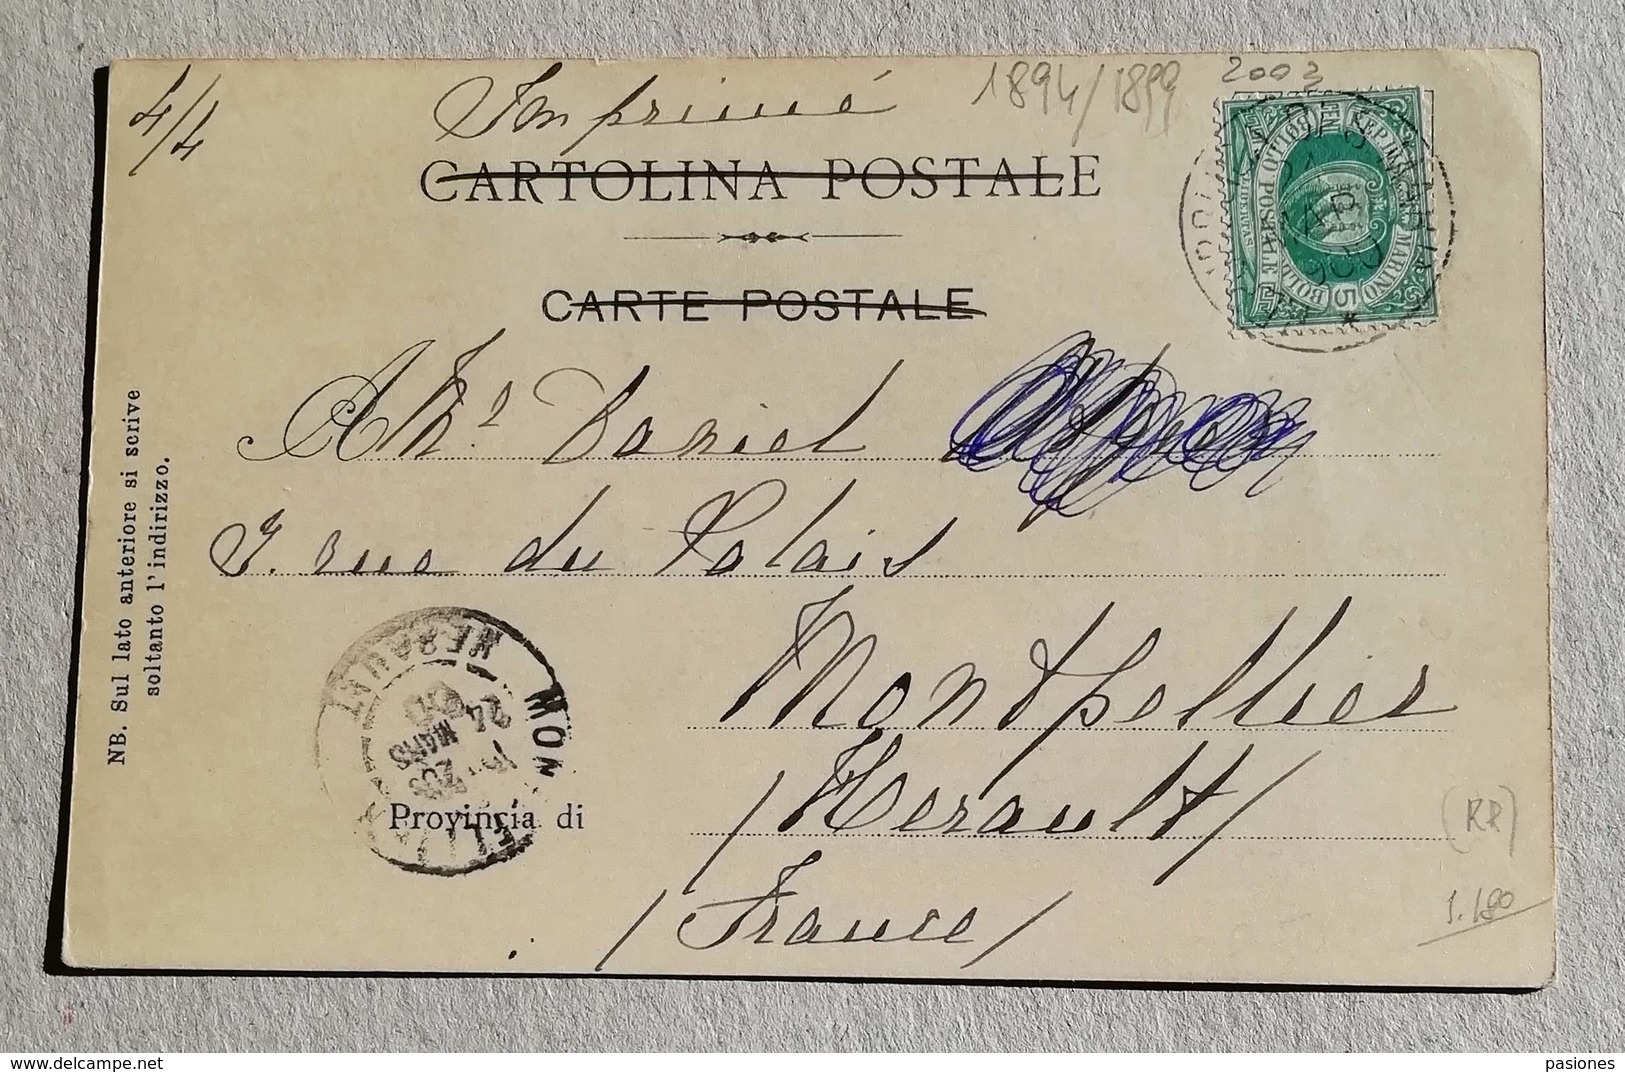 4/4
Imprimé
1894/1899
2003
CARTOLINA POSTALE
CARTE POSTALE
REPUBBLICA DI S. MARINO
BOLLO POSTALE
CEN. 5
Daniel
rue du Palais
Montpellier
/Herault/
/France/
Provincia di
NB. Sul lato anteriore si scrive
soltanto l'indirizzo.
MONTPELLIER
HERAULT
24
MARS
(RR)
delcampe.net
pasiones